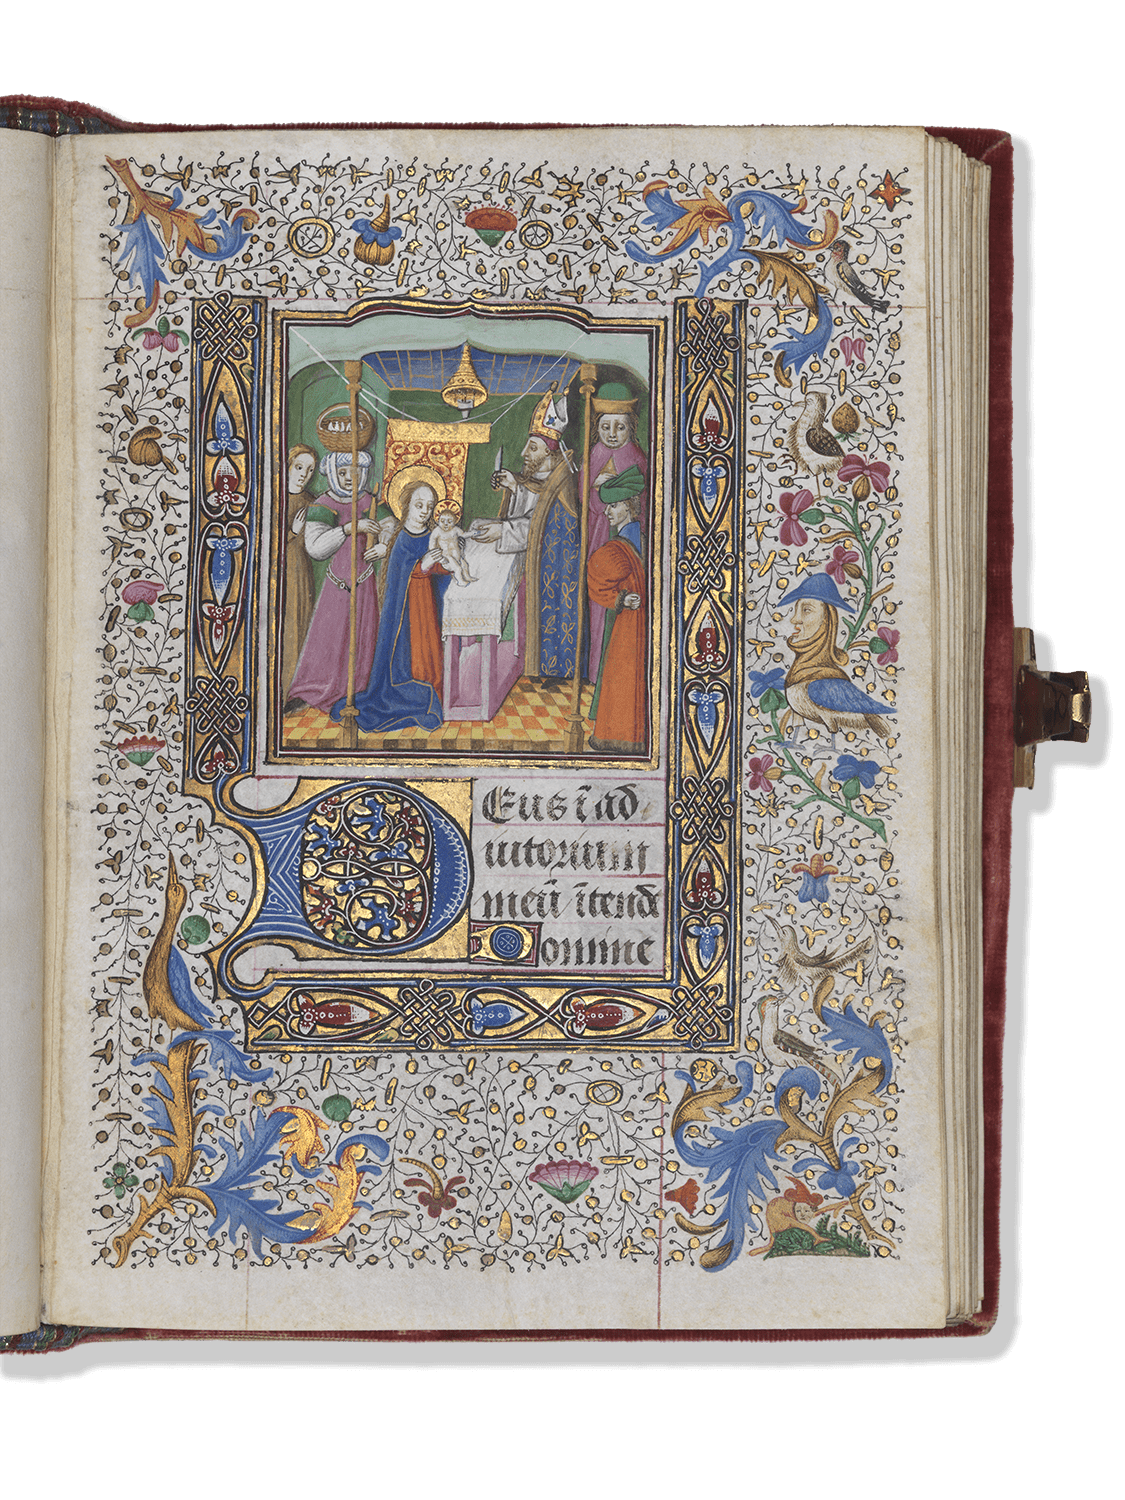 Deus ī ad
iutorium
meū ītende
Domine